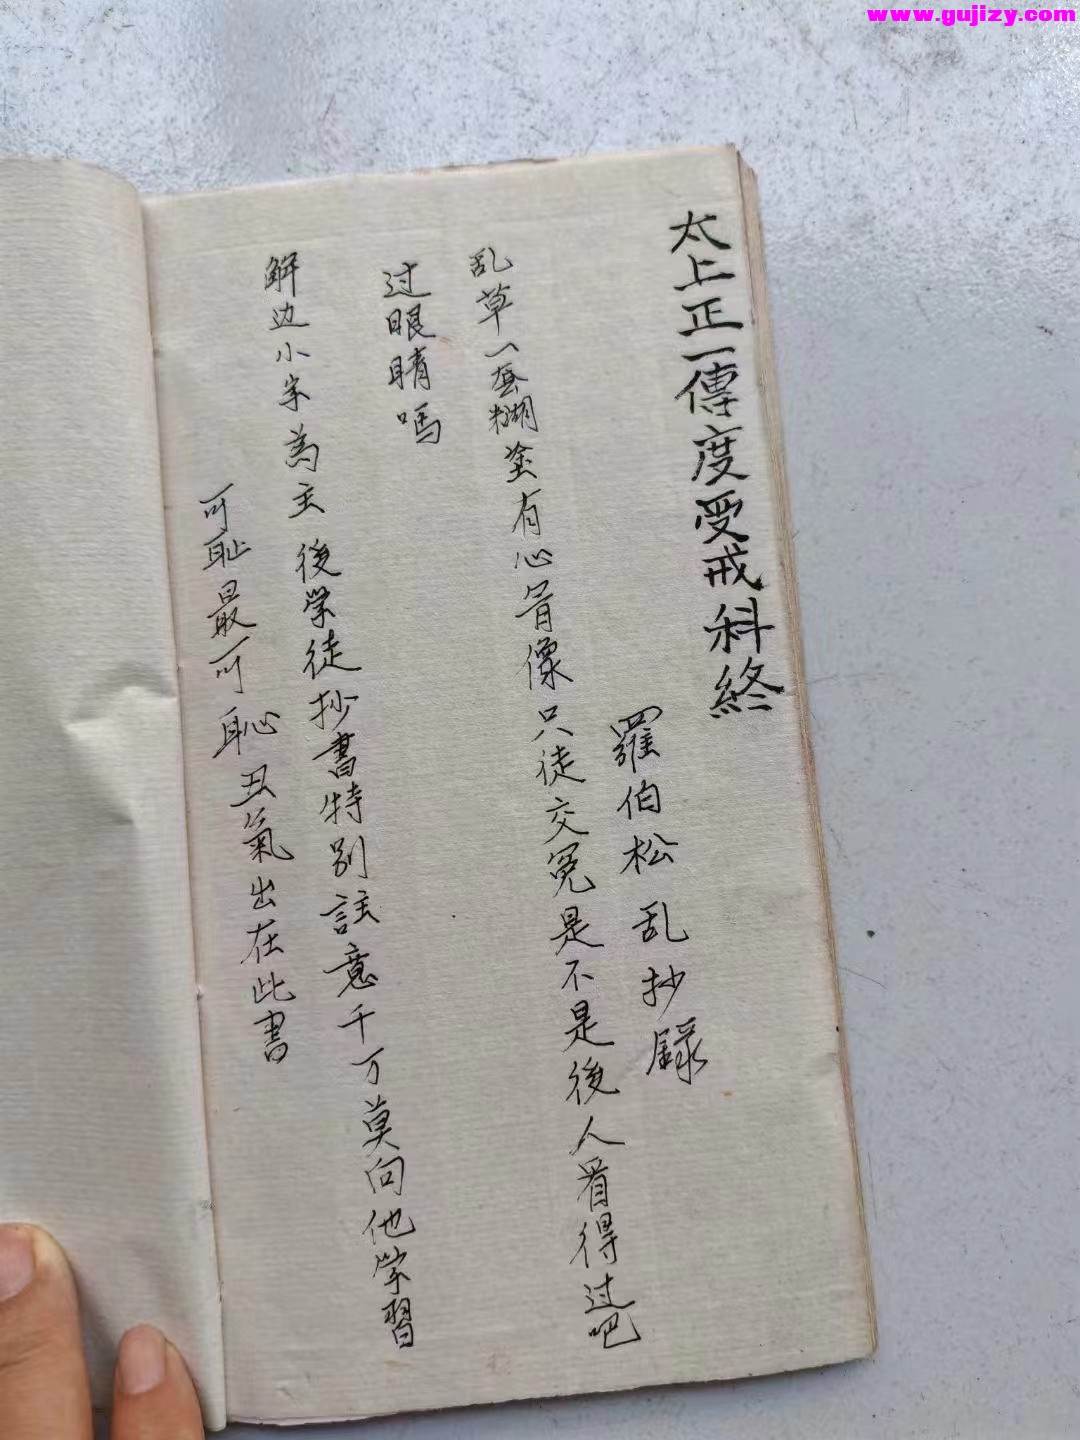 www.gujizy.com
太上正一傳度受戒科終
羅伯松乱抄録
乱草一蚕糊塗有心肯像只徒交冤是不是後人看得过吧
过眼睛吗
解边小字為主後学徒抄書特别註意千万莫向他学習
可耻最可恥丑氣出在此書